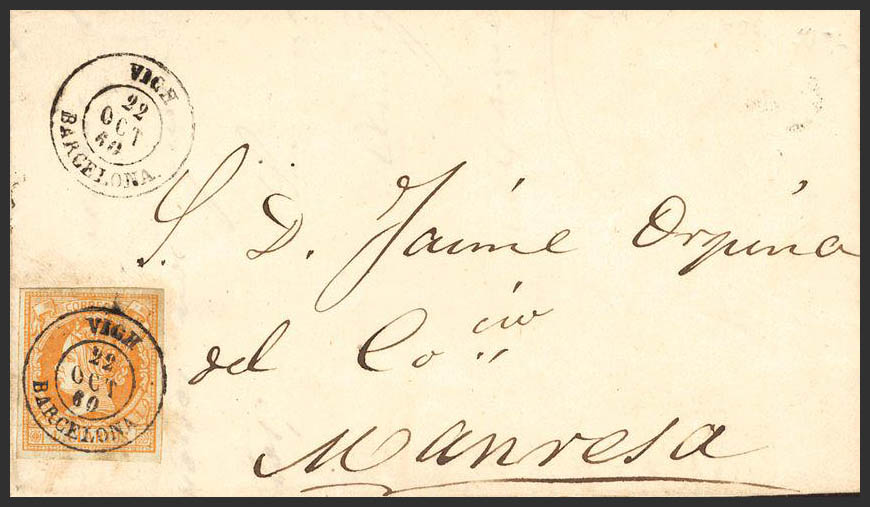 VICH
22
OCT
60
BARCELONA.
S. D. Jaime Orpina
del Co cio
Manresa
CORREOS
VICH
22
OCT
60
BARCELONA